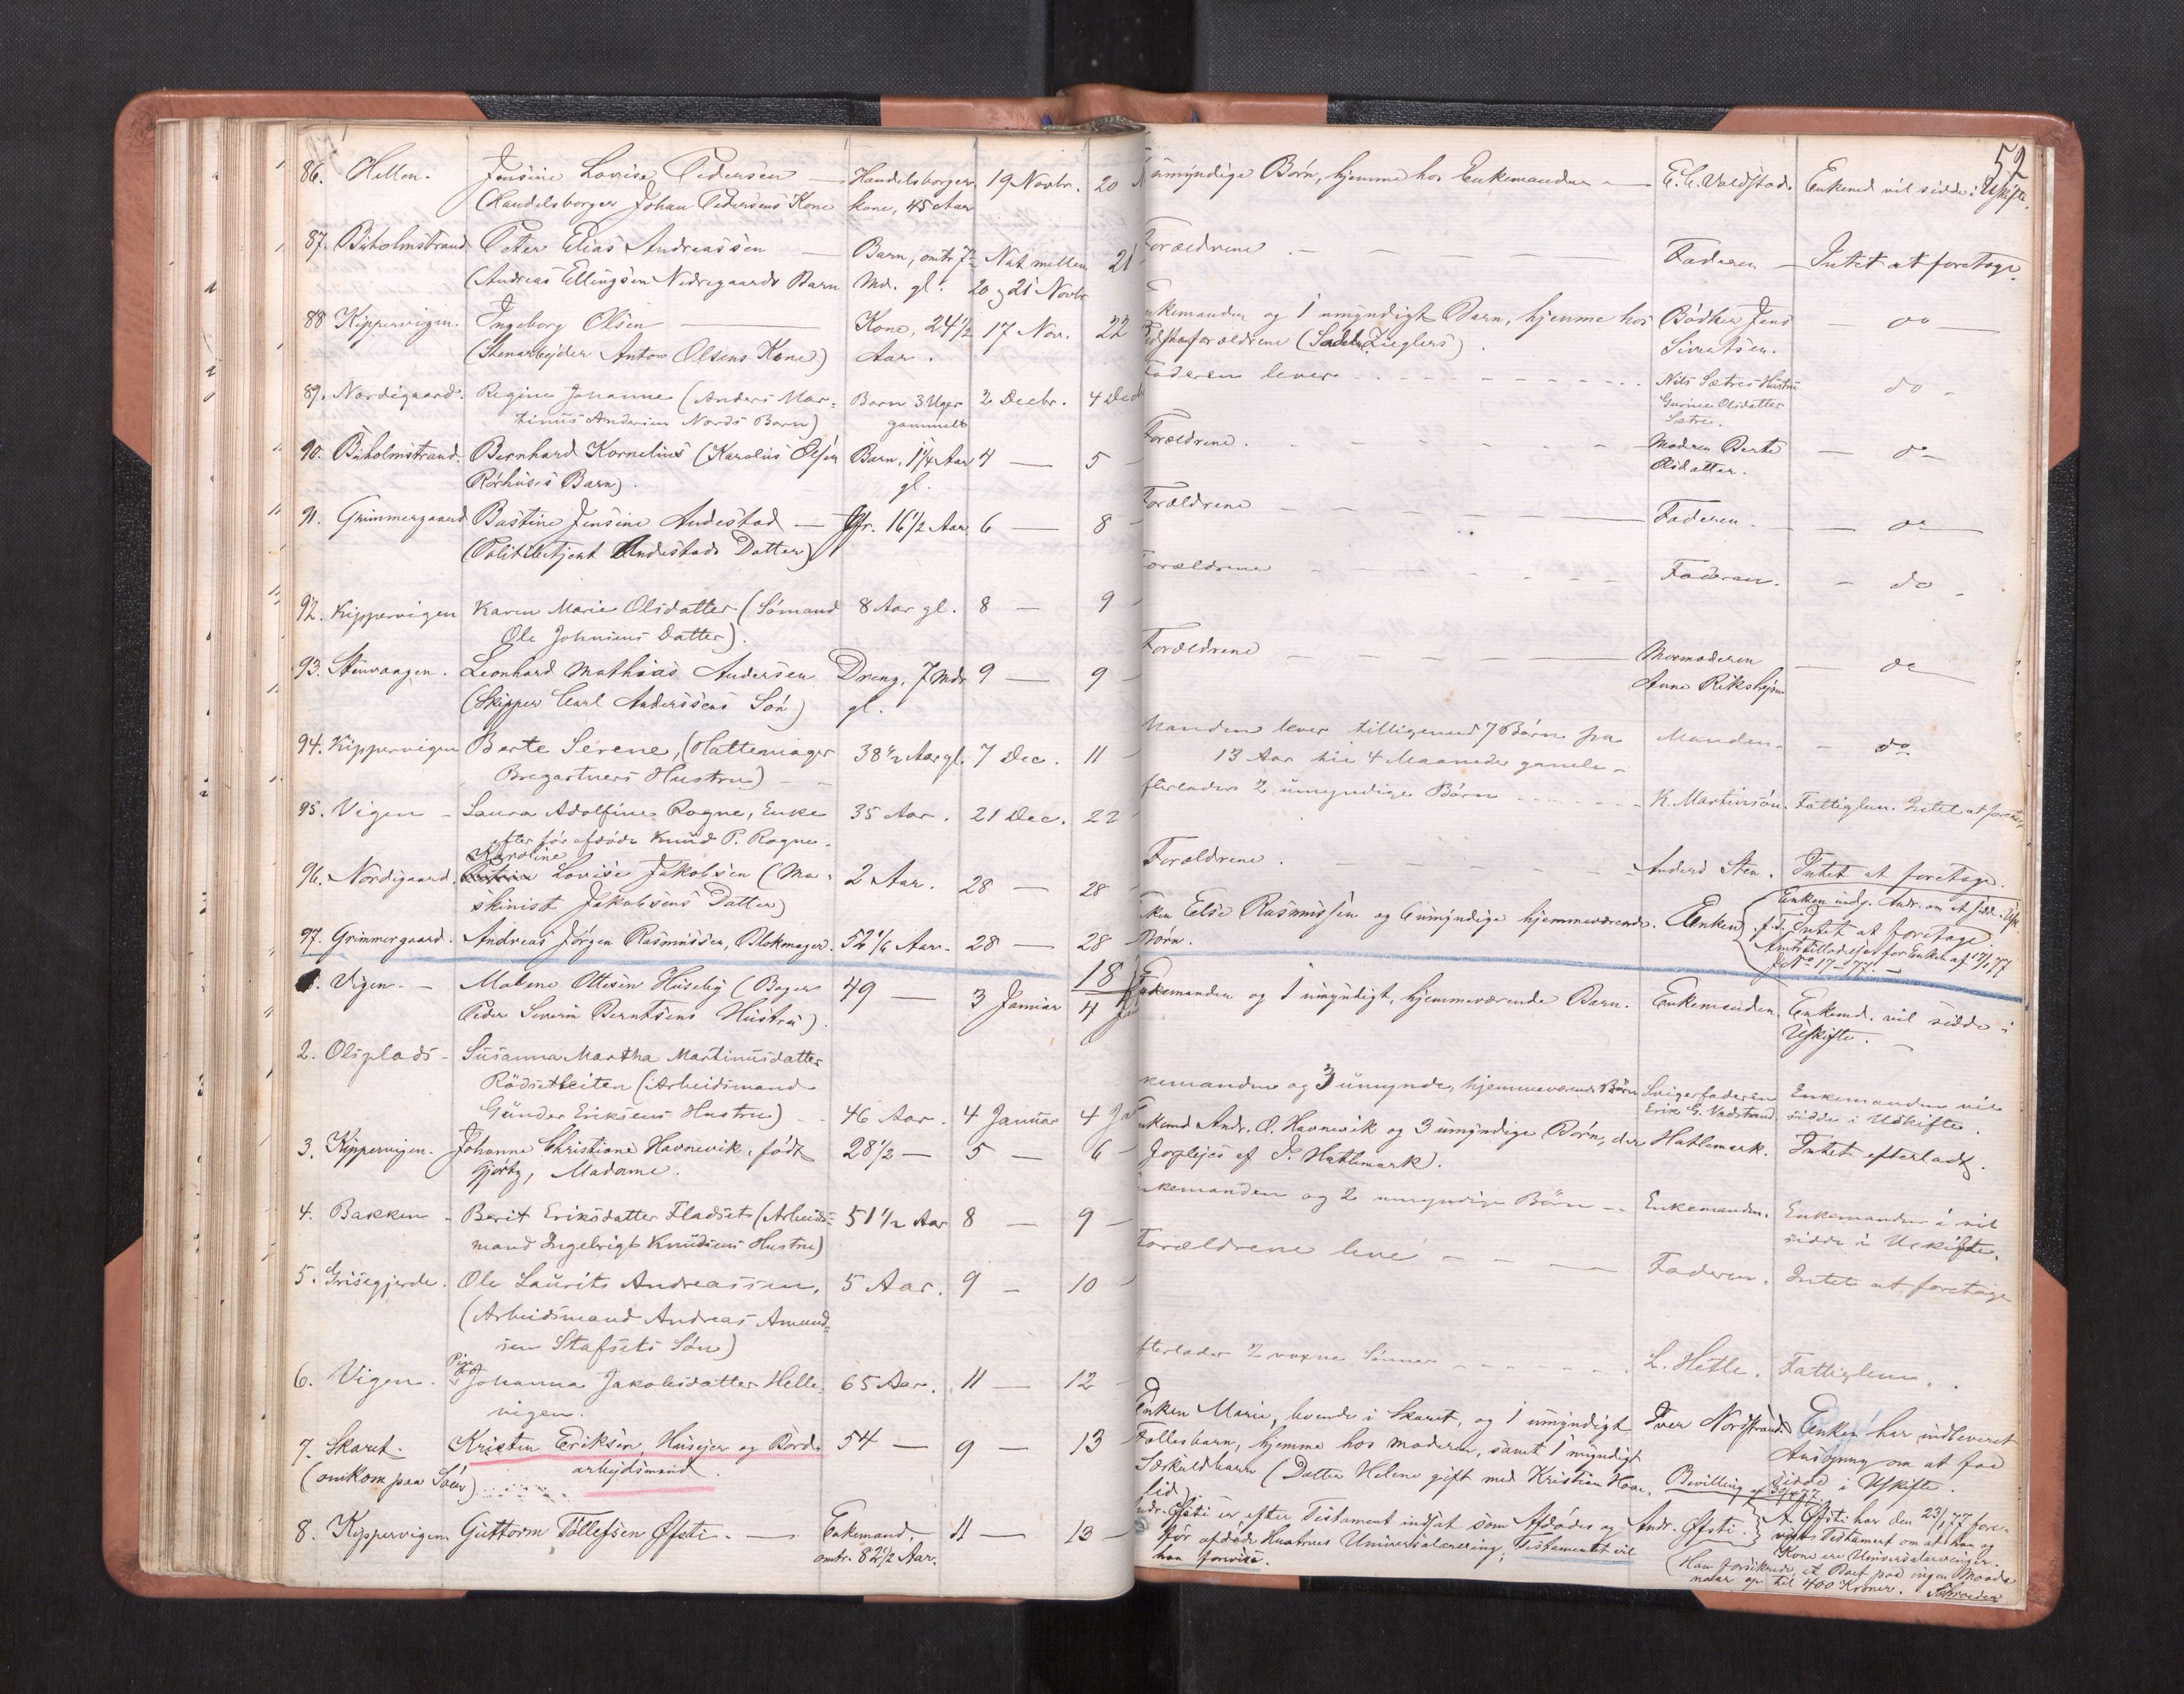 52
86. Hellen. Jensine Lovise Pedersen — Handelsborger 19 Novbr. 20
(Handelsborger Johan Pedersens Kone kone, 45 Aar
umyndige Børn, hjemme hos Enkemanden — E. C. Valdstad. Enkemd vil sidde i Uskifte.
87. Buholmstrand Peter Elias Andreassen — Barn, omtr 7 Nat mellem 21
(Andreas Ellingsen Nedregaards Barn Md. gl. 20 og 21 Novbr
Forældrene — Faderen — Intet at foretage.
88 Kippervigen. Ingeborg Olsen — Kone, 24 1/2 17 Nov. 22
(Stenarbejder Anton Olsens Kone) Aar.
Enkemanden og 1 umyndigt Barn, hjemme hos Bødker Jens — do —
(Zieglers). Sivertsen.
89. Nordigaard. Regine Johanne (Anders Mar- Barn 3 Uger 2 Decbr. 4 Decb
tinus Andersen Nords Barn) gammelt
Faderen lever Nils Sætres Hustru do -
Gurine Olsdatter
Sætre.
90. Buholmstrand. Bernhard Kornelius (Karolus Olsen Barn, 1 1/4 Aar 4 — 5 -
Rørhuses Barn). gl.
Forældrene. Modren Berte — do
Olsdatter.
91. Grimmergaard Bastine Jensine Andestad — Jfr. 16 1/2 Aar 6 — 8 -
(Politibetjent Andestads Datter)
Forældrene Faderen. — do
92. Kippervigen Karen Marie Olsdatter (Sømand 8 Aar gl. 8 — 9 -
Ole Johnsens Datter).
Forældrene Faderen. - do -
93. Stenvaagen. Leonhard Mathias Andersen Dreng, 7 Mdr 9 — 9 -
(Skipper Carl Anderssens Søn) gl.
Forældrene Mormoderen — do
Anne Rikshejm
94. Kippervigen Berte Serene, (Hattemager 38 1/2 Aar gl. 7 Dec. 11 -
Bregartners Hustru)
Manden lever tilligemed 7 Børn fra Manden - - do
13 Aar til 4 Maaneder gamle -
95. Vigen - Laura Adolfine Rogne, Enke 35 Aar. 21 Dec. 22
efter før afdøde Knud P. Rogne.
Efterlader 2 umyndige Børn K. Martinsøn. Fattiglem. Intet at foretage
Karoline
96. Nordigaard. Lovise Jakobsen (Ma- 2 Aar. 28 — 28 -
skinist Jakobsens Datter)
Forældrene. Anders Sten. Intet at foretage.
97. Grimmergaard. Andreas Jørgen Rasmussen, Blokmager. 52 1/6 Aar. 28 — 28
Enken Else Rasmussen og 6 umyndige hjemmeværende Enken Enken indg. Andr. om at sidde i Usk.
Børn. f. T. Intet at foretage.
Amtstilladelse for Enken af 17/1 77
J No 17 - 77. -
18
1. Vigen. - Malene Ottesen Huseby (Bager 49 — 3 Januar 4 Jan
Peder Severin Berntsens Hustru).
Enkemanden og 1 umyndigt, hjemmeværende Barn. Enkemanden. Enkemd. vil sidde i
Uskifte. -
2. Olsplads - Susanna Martha Martinusdatter
Rödsetleiten (Arbeidsmand
Gunder Eriksens Hustru) - 46 Aar. 4 Januar 4 Ja
Enkemanden og 3 umynde, hjemmeværende Børn Svigerfaderen Enkemanden vil
Erik G. Vadstrand sidde i Uskifte.
3. Kippervigen. Johanne Christiane Havnevik, født 28 1/2 — 5 — 6 -
Gjørtz, Madame.
Enkemd Andr. O. Havnevik og 3 umyndige Børn, der Hatlemark. Intet efterladt.
forplejes af J. Hatlemark).
4. Bakken - Berit Eriksdatter Fladset (Arbeids- 51 1/2 Aar 8 — 9 -
mand Ingebrigt Knudsens Hustru)
Enkemanden og 2 umyndige Børn -- Enkemanden. Enkemanden vil
sidde i Uskifte.
5. Grisegjerde. Ole Laurits Andreassen, 5 Aar. 9 - 10 -
(Arbeidsmand Andreas Amund-
sen Stafsets Søn)
Forældrene leve - - — Faderen. Intet at foretage
6. Vigen. Pige Johanna Jakobsdatter Helle- 65 Aar. 11 — 12 -
vigen.
Efterlader 2 voxne Sønner L. Hetle. Fattiglem.
7. Skaret. Kristen Eriksen, Husejer og Bord- 54 — 9 — 13
(omkom paa Søen) arbejdsmand.
Enken Marie, boende i Skaret, og 1 umyndigt Iver Nordstrand Enken har indleveret
Fællesbarn, hjemme hos moderen, samt 1 myndigt Ansøgning om at faa
Særkuldbarn (Datter Helene gift med Kristian Hov- Bevilling af sidde i Uskifte.
lid).
8. Kippervigen. Guttorm Tollefsen Øfsti. — Enkemand. 11 — 13 -
omtr. 82 1/2 Aar.
Andr. Øfsti er efter Testament indsat som Afdødes og Andr. Øfsti. A. Øfsti har den 23/1 77 fore-
før afdøde Hustrues Universalarving, Testamentet vil vist Testament om at han og
han forevise. Kone ere Universalarvinger.
(Han forsikrede, at Boet paa ingen Maade
naaer op til 400 Kroner. Schrøder